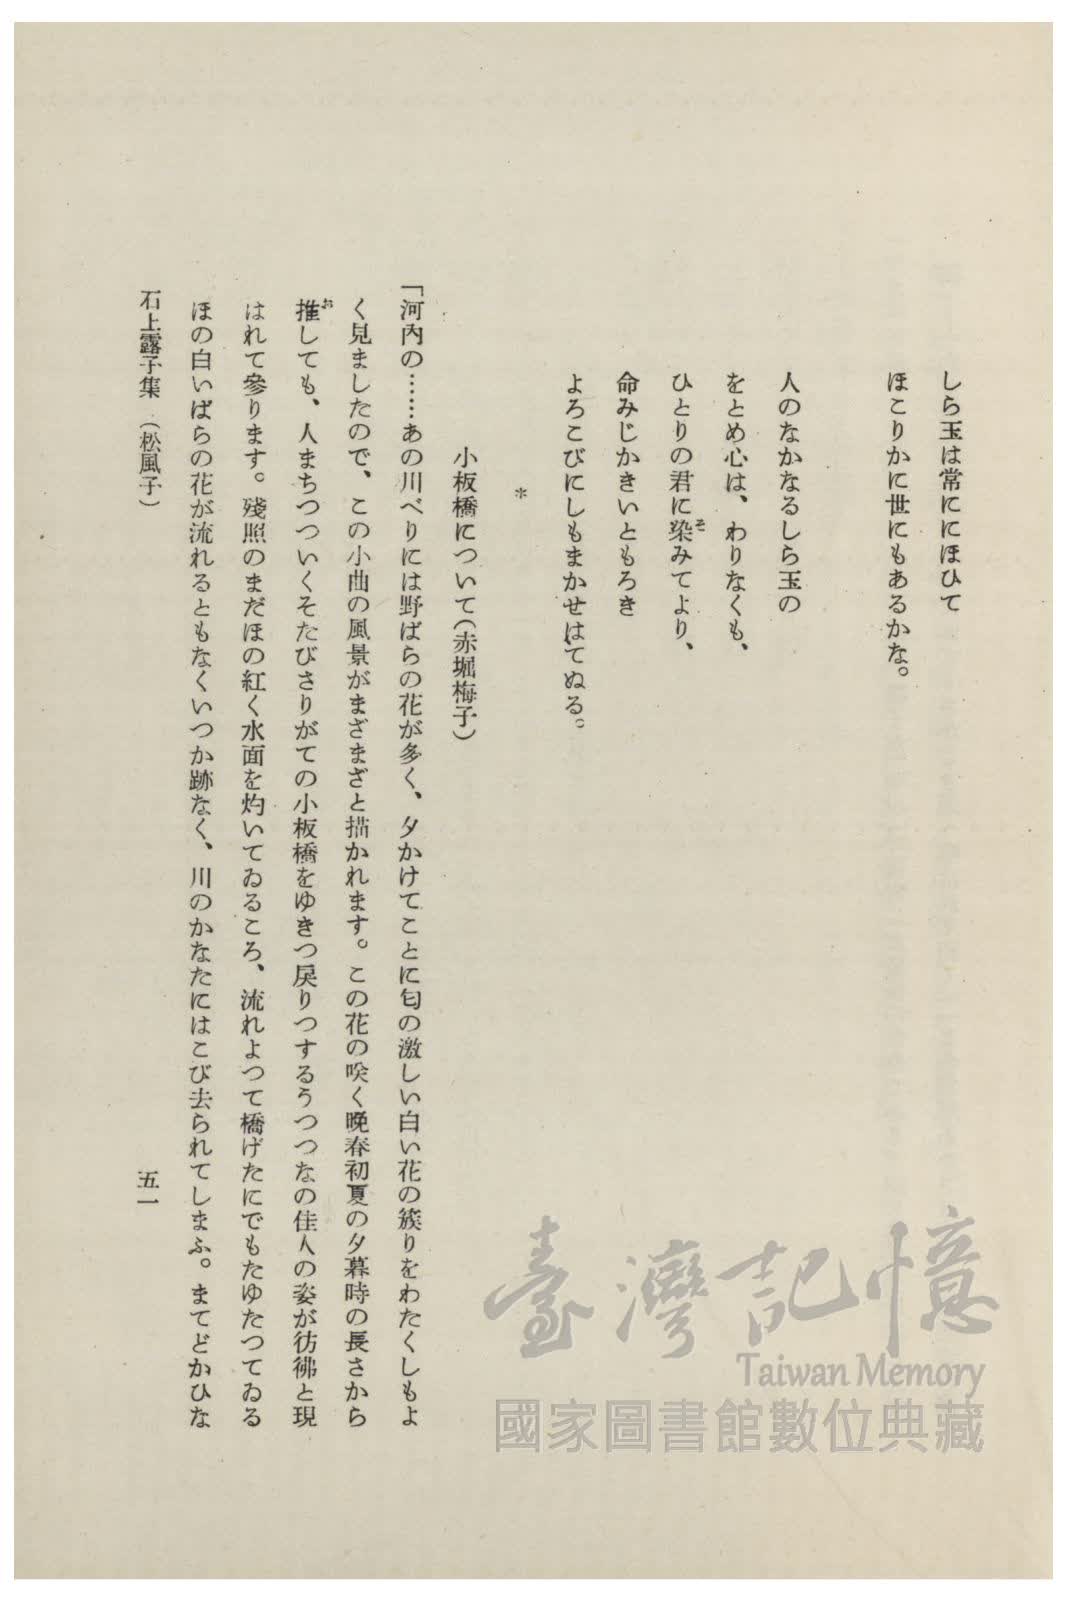 しら玉は常ににほひて
ほこりかに世にもあるかな。
人のなかなるしら玉の
をとめ心は、わりなくも、
ひとりの君に染みてより、
そ
命みじかきいともろき
よろこびにしもまかせはてぬる。
*
小板橋について(赤堀梅子)
「河内の……あの川べりには野ばらの花が多く、夕かけてことに匂の激しい白い花の簇りをわたくしもよ
く見ましたので、この小曲の風景がまざまざと描かれます。この花の咲く晩春初夏の夕暮時の長さから
推しても、人まちつついくそたびさりがての小板橋をゆきつ戻りつするうつつなの佳人の姿が彷彿と現
お
はれて參ります。殘照のまだほの紅く水面を灼いてゐるころ、流れよつて橋げたにでもたゆたつてゐる
ほの白いばらの花が流れるともなくいつか跡なく、川のかなたにはこび去られてしまふ。まてどかひな
石上露子集 (松風子)
五一
臺灣記憶
Taiwan Memory
國家圖書館數位典藏